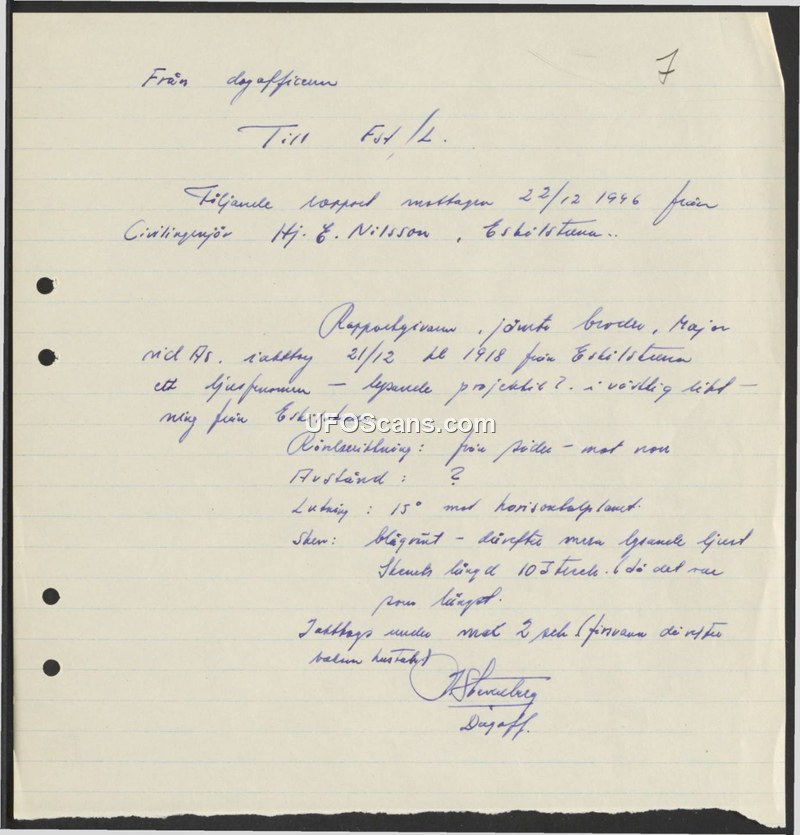 7
Från dagofficeren
Till Fst/L.
Följande rapport mottagen 22/12 1946 från
Civilingenjör Hj. E. Nilsson, Eskilstuna..
Rapportgivaren, jämte broder, Major
vid A5, iakttog 21/12 kl 1918 från Eskilstuna
ett ljusfenomen – lysande projektil?. i västlig rikt-
ning från Eskilstuna
UFOScans.com
Rörelseriktning: från söder – mot norr
Avstånd : ?
Lutning : 15° mot horisontalplanet.
Sken: blågrönt – därefter mera lysande ljust
Skenets längd 10 då det var
som längst.
Iakttogs under mot 2 sek försvann därefter
bakom
Dagoff.